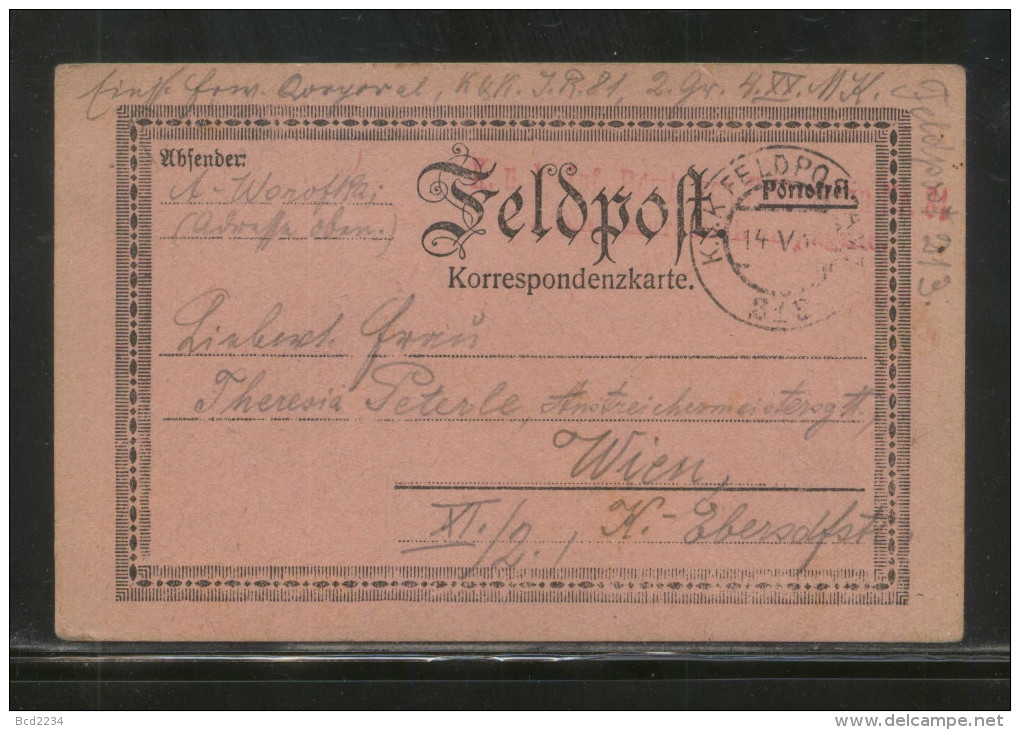 Einj. frw. Corporal, K&K. I.R. 81, 2. Gr. 4. XX. MK.
Feldpost 213.
Absender:
A. Worofka;
(Adresse oben.)
Feldpost
Portofrei.
K.u.K. FELDPO
14 V
Korrespondenzkarte.
Frau
Theresia Peterle, Anstreichermeistersgtt,
Wien,
XI./2., K.- Ebersdfstr.
Bcd2234
www.delcampe.net